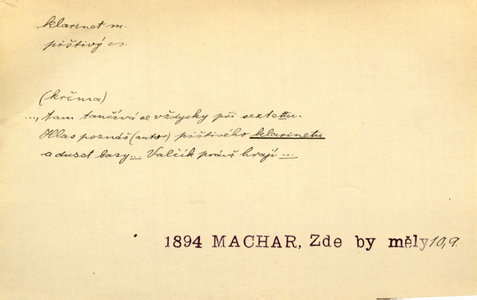 klarinet m.
pištivý es.
(krčma)
..., tam tančívá se vždycky při sextettu.
Hlas poznáš (autor) pištivého klarinetu
a dusot basy... Valčík právě hrají ...
1894 MACHAR, Zde by měly 10,9